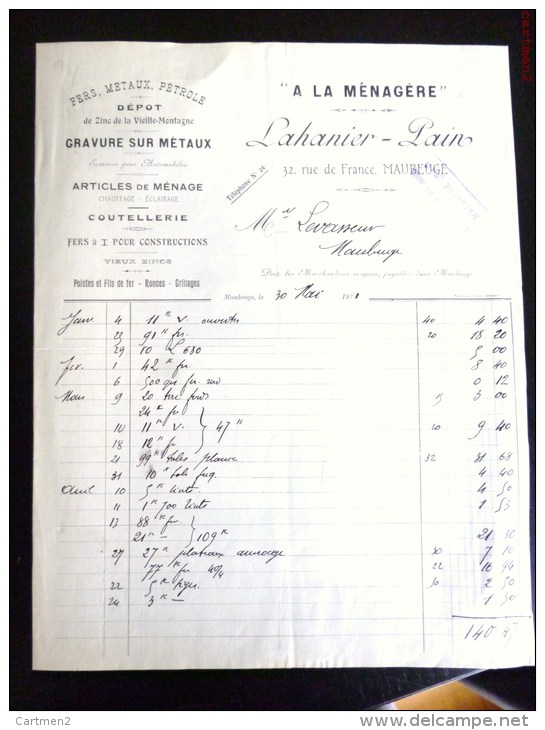 FERS, MÉTAUX, PÉTROLE
DÉPOT
de Zinc de la Vieille-Montagne
GRAVURE SUR MÉTAUX
Essences pour Automobiles
ARTICLES DE MÉNAGE
CHAUFFAGE - ÉCLAIRAGE
COUTELLERIE
FERS à I POUR CONSTRUCTIONS
VIEUX ZINCS
Pointes et Fils de fer - Ronces - Grillages
"A LA MÉNAGÈRE"
Lahanier - Pain
32, rue de France, MAUBEUGE
Téléphone N° 28
Levasseur
Maubeuge
Doit les Marchandises reçues, payables dans Maubeuge
Maubeuge, le 30 Mai 191
Janv 4 11 k v. ouvertes 40 4 40
23 91 k fr. 20 18 20
29 10 L 680 5 00
fev. 1 42 k fr. 8 40
6 0 12
Mars 9 20 15 3 00
24 k fr
10 11 k v. 47 k 20 9 40
18 12 k fr
21 99 k toles 32 31 68
31 10 k 4 40
Avril 10 5 k 4 50
11 1 k 700 1 53
13 88 k fr.
21 k — 109 k 21 80
27 27 k plateaux 7 10
77 k fr 40/4 22 16 94
22 5 k 50 2 50
24 3 k — 1 50
140
cartmen2
Cartmen2
www.delcampe.net